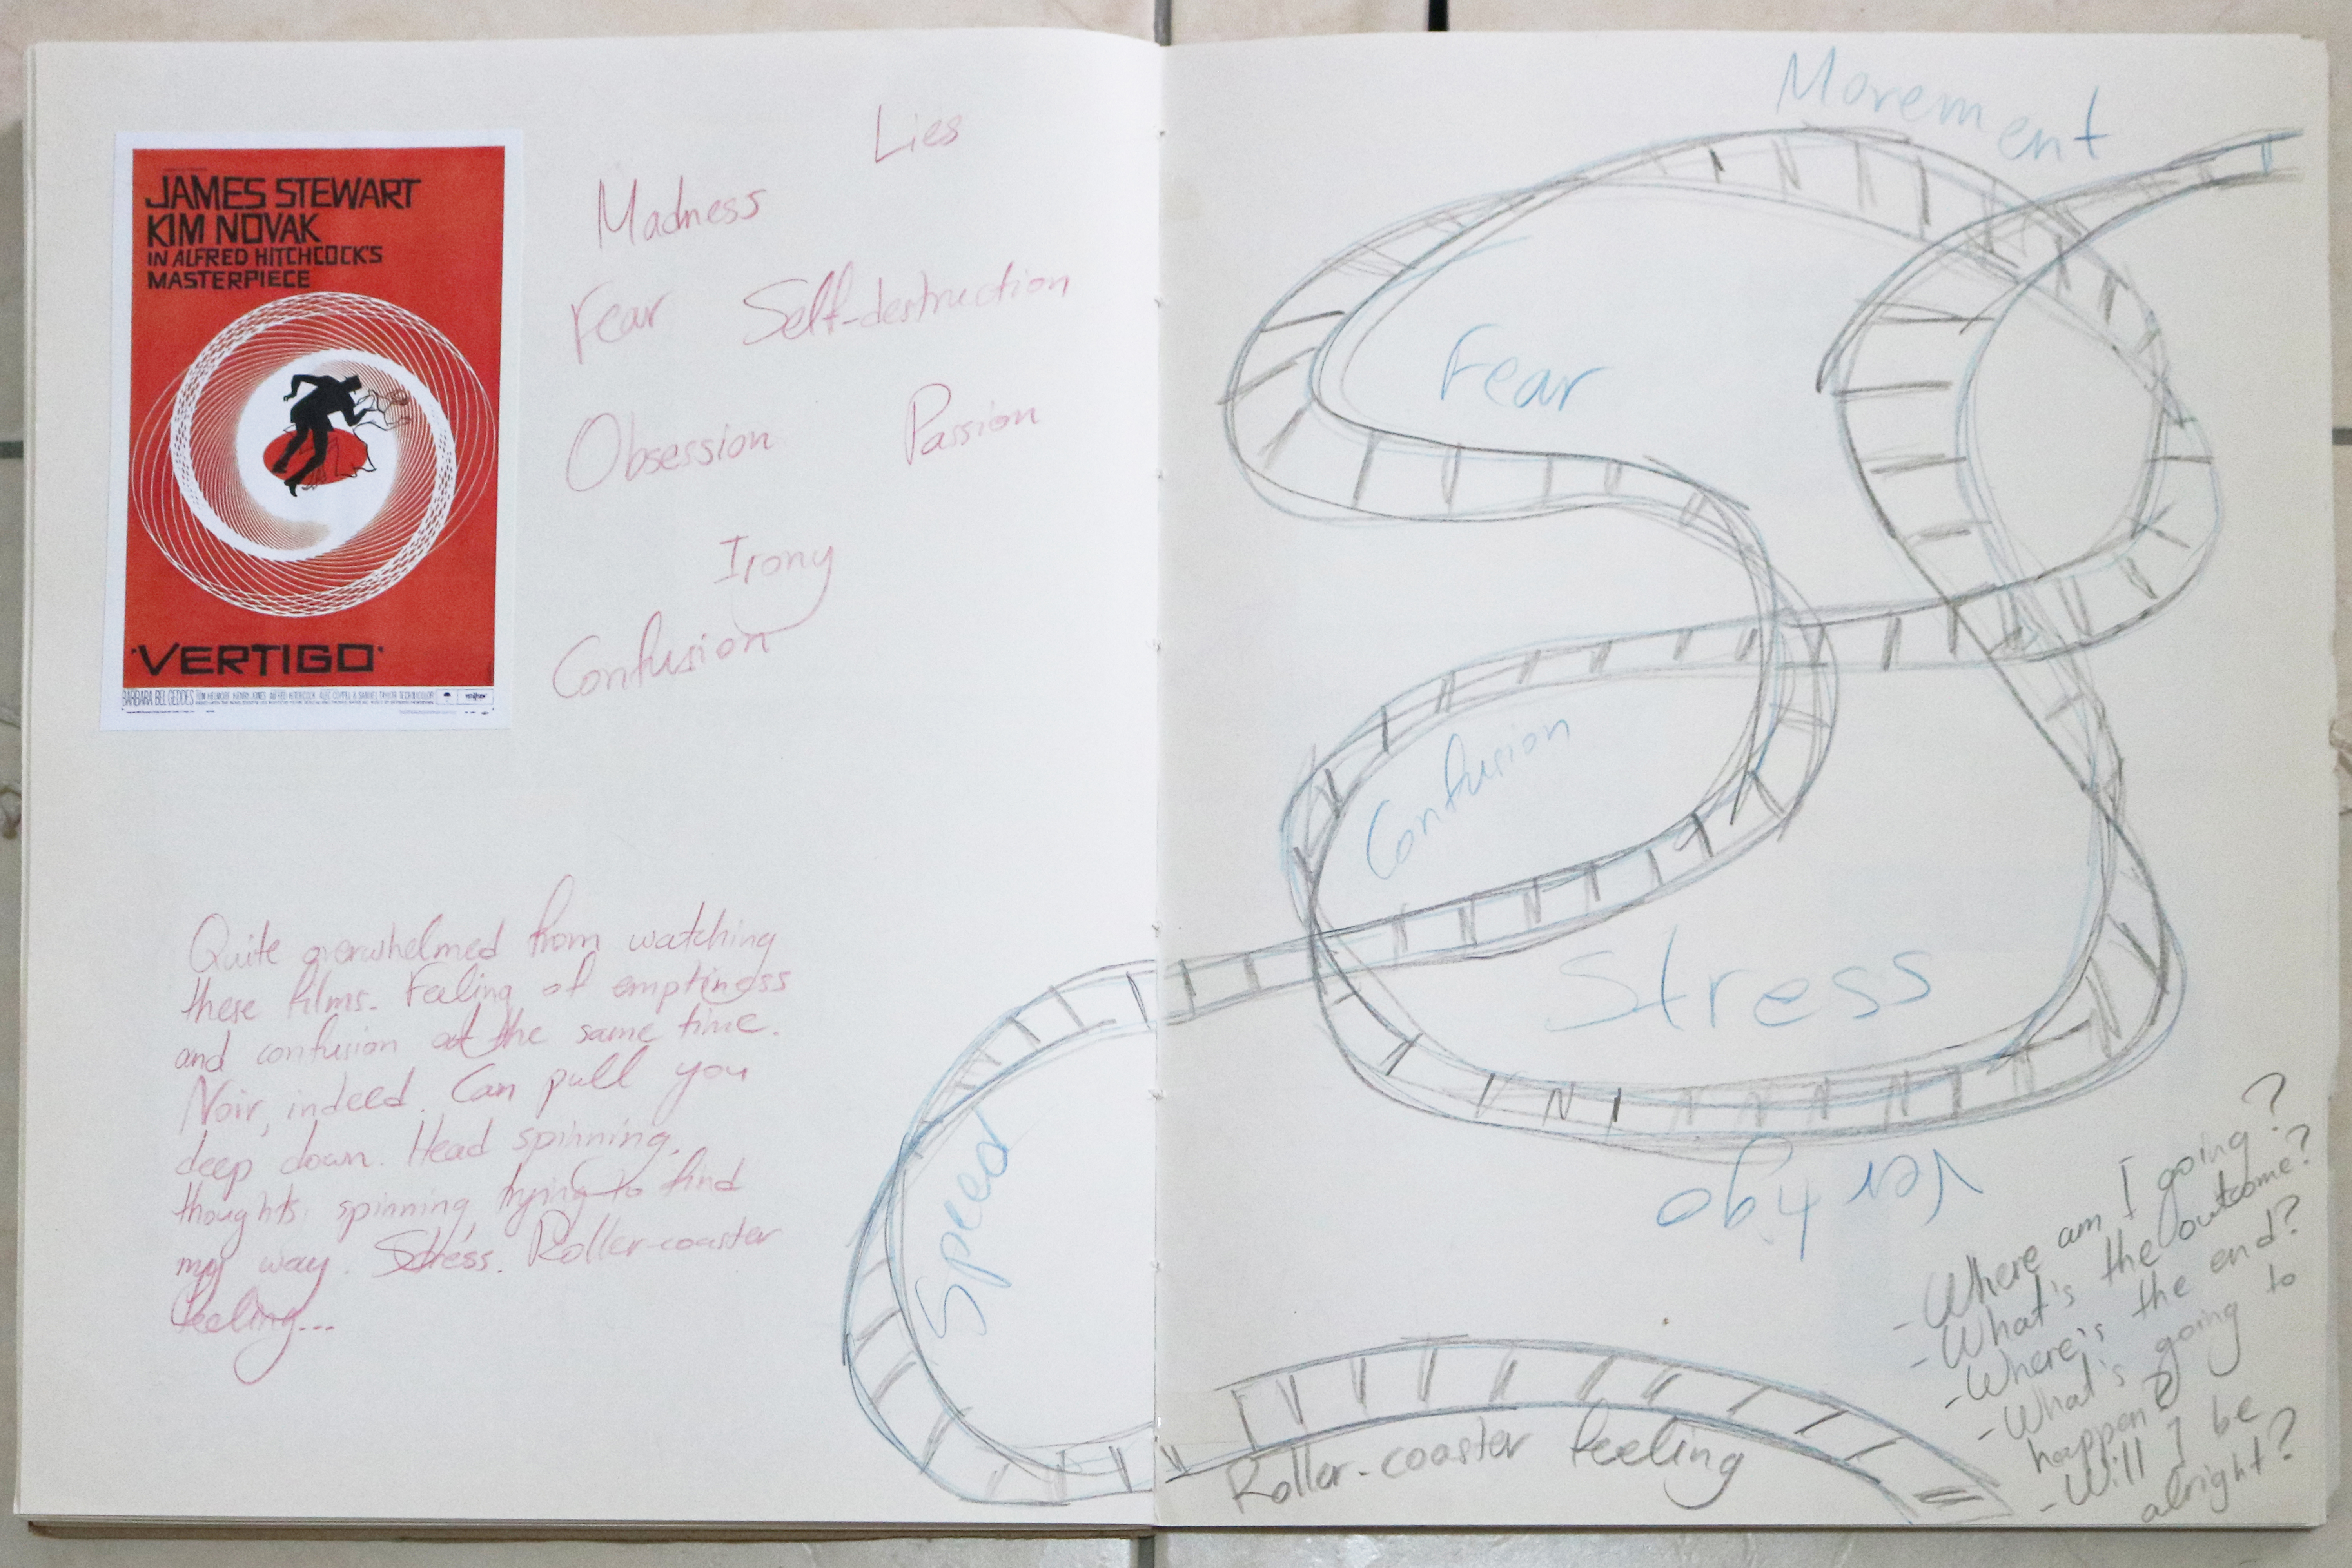 JAMES STEWART
KIM NOVAK
IN ALFRED HITCHCOCK'S
MASTERPIECE
'VERTIGO'
BARBARA BEL GEDDES
Lies
Madness
Fear Self-destruction
Obsession Passion
Irony
Confusion
Quite overwhelmed from watching
these films. Feeling of emptiness
and confusion at the same time.
Noir, indeed. Can pull you
deep down. Head spinning,
thoughts spinning, trying to find
my way. Stress. Roller-coaster
feeling...
Speed
Movement
Fear
Confusion
Stress
Vertigo
Roller-coaster feeling
- Where am I going?
- What's the outcome?
- Where's the end?
- What's going to
happen?
- Will I be
alright?